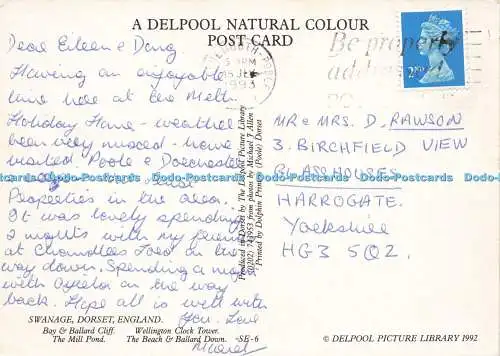 A DELPOOL NATURAL COLOUR
POST CARD
Dear Eileen & Doug
Having an enjoyable
time here at the Meth.
Holiday Home - weather
been very mixed - have
visited Poole & Dorchester
Properties in the area.
It was lovely spending
2 nights with my friend
at Chandlers Ford on the
way down. Spending a night
with on the way
back. Hope all is well with
you. Love
5 PM
1993
Be properly
addressed
2ND
MR & MRS. D. RAWSON
3. BIRCHFIELD VIEW
GLASSHOUSES
HARROGATE.
Yorkshire
HG3 5QZ.
Produced in Dorset by The Delpool Picture Library
(0202) 743953 from photos by Michael J Allen
Printed by Dolphin Printers (Poole) Dorset
Dodo-Postcards Dodo-Postcards Dodo-Postcards Dodo-Postcards Dodo-Postcards
SWANAGE, DORSET, ENGLAND.
Bay & Ballard Cliff. Wellington Clock Tower.
The Mill Pond. The Beach & Ballard Down. SE-6
© DELPOOL PICTURE LIBRARY 1992